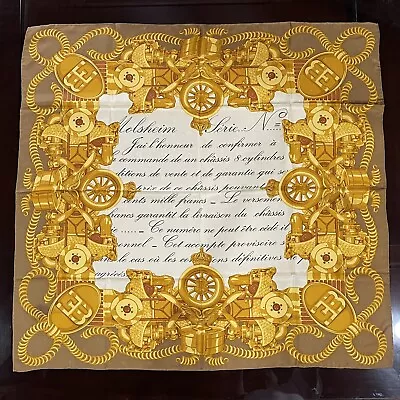 Molsheim Série N=o
J'ai l'honneur de confirmer à
commande de un châssis 8 cylindres
ditions de vente et de garantie qui se
prix de ce châssis pouvant
cents mille francs – Le versement
francs garantit la livraison du châssis
...... – Ce numéro ne peut être cédé il
onnel – Cet acompte provisoire s
le cas où les conditions définitives
agréées
EB
EB
EB
EB